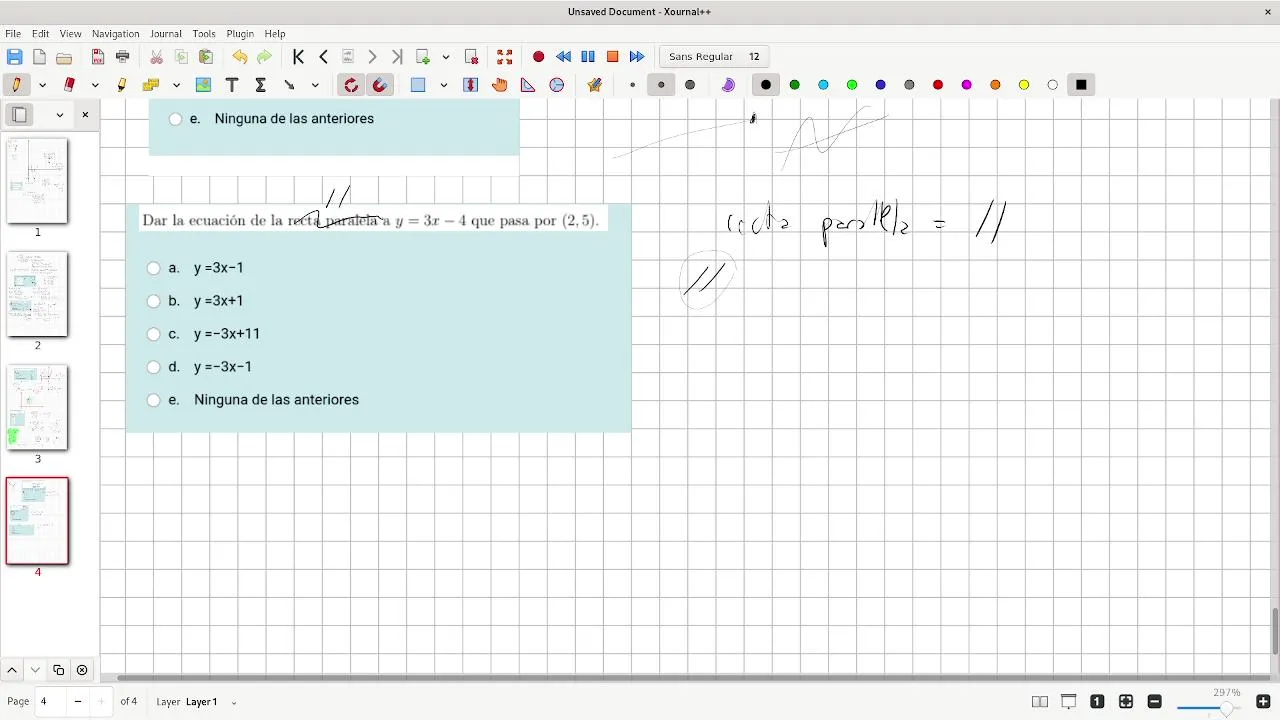 Unsaved Document - Xournal++
×
File Edit View Navigation Journal Tools Plugin Help
Sans Regular 12
e. Ninguna de las anteriores
//
Dar la ecuación de la recta paralela a y = 3x − 4 que pasa por (2, 5).
recta paralela = //
//
a. y =3x−1
b. y =3x+1
c. y =−3x+11
d. y =−3x−1
e. Ninguna de las anteriores
1
2
3
4
Page 4 − + of 4 Layer Layer1
297%